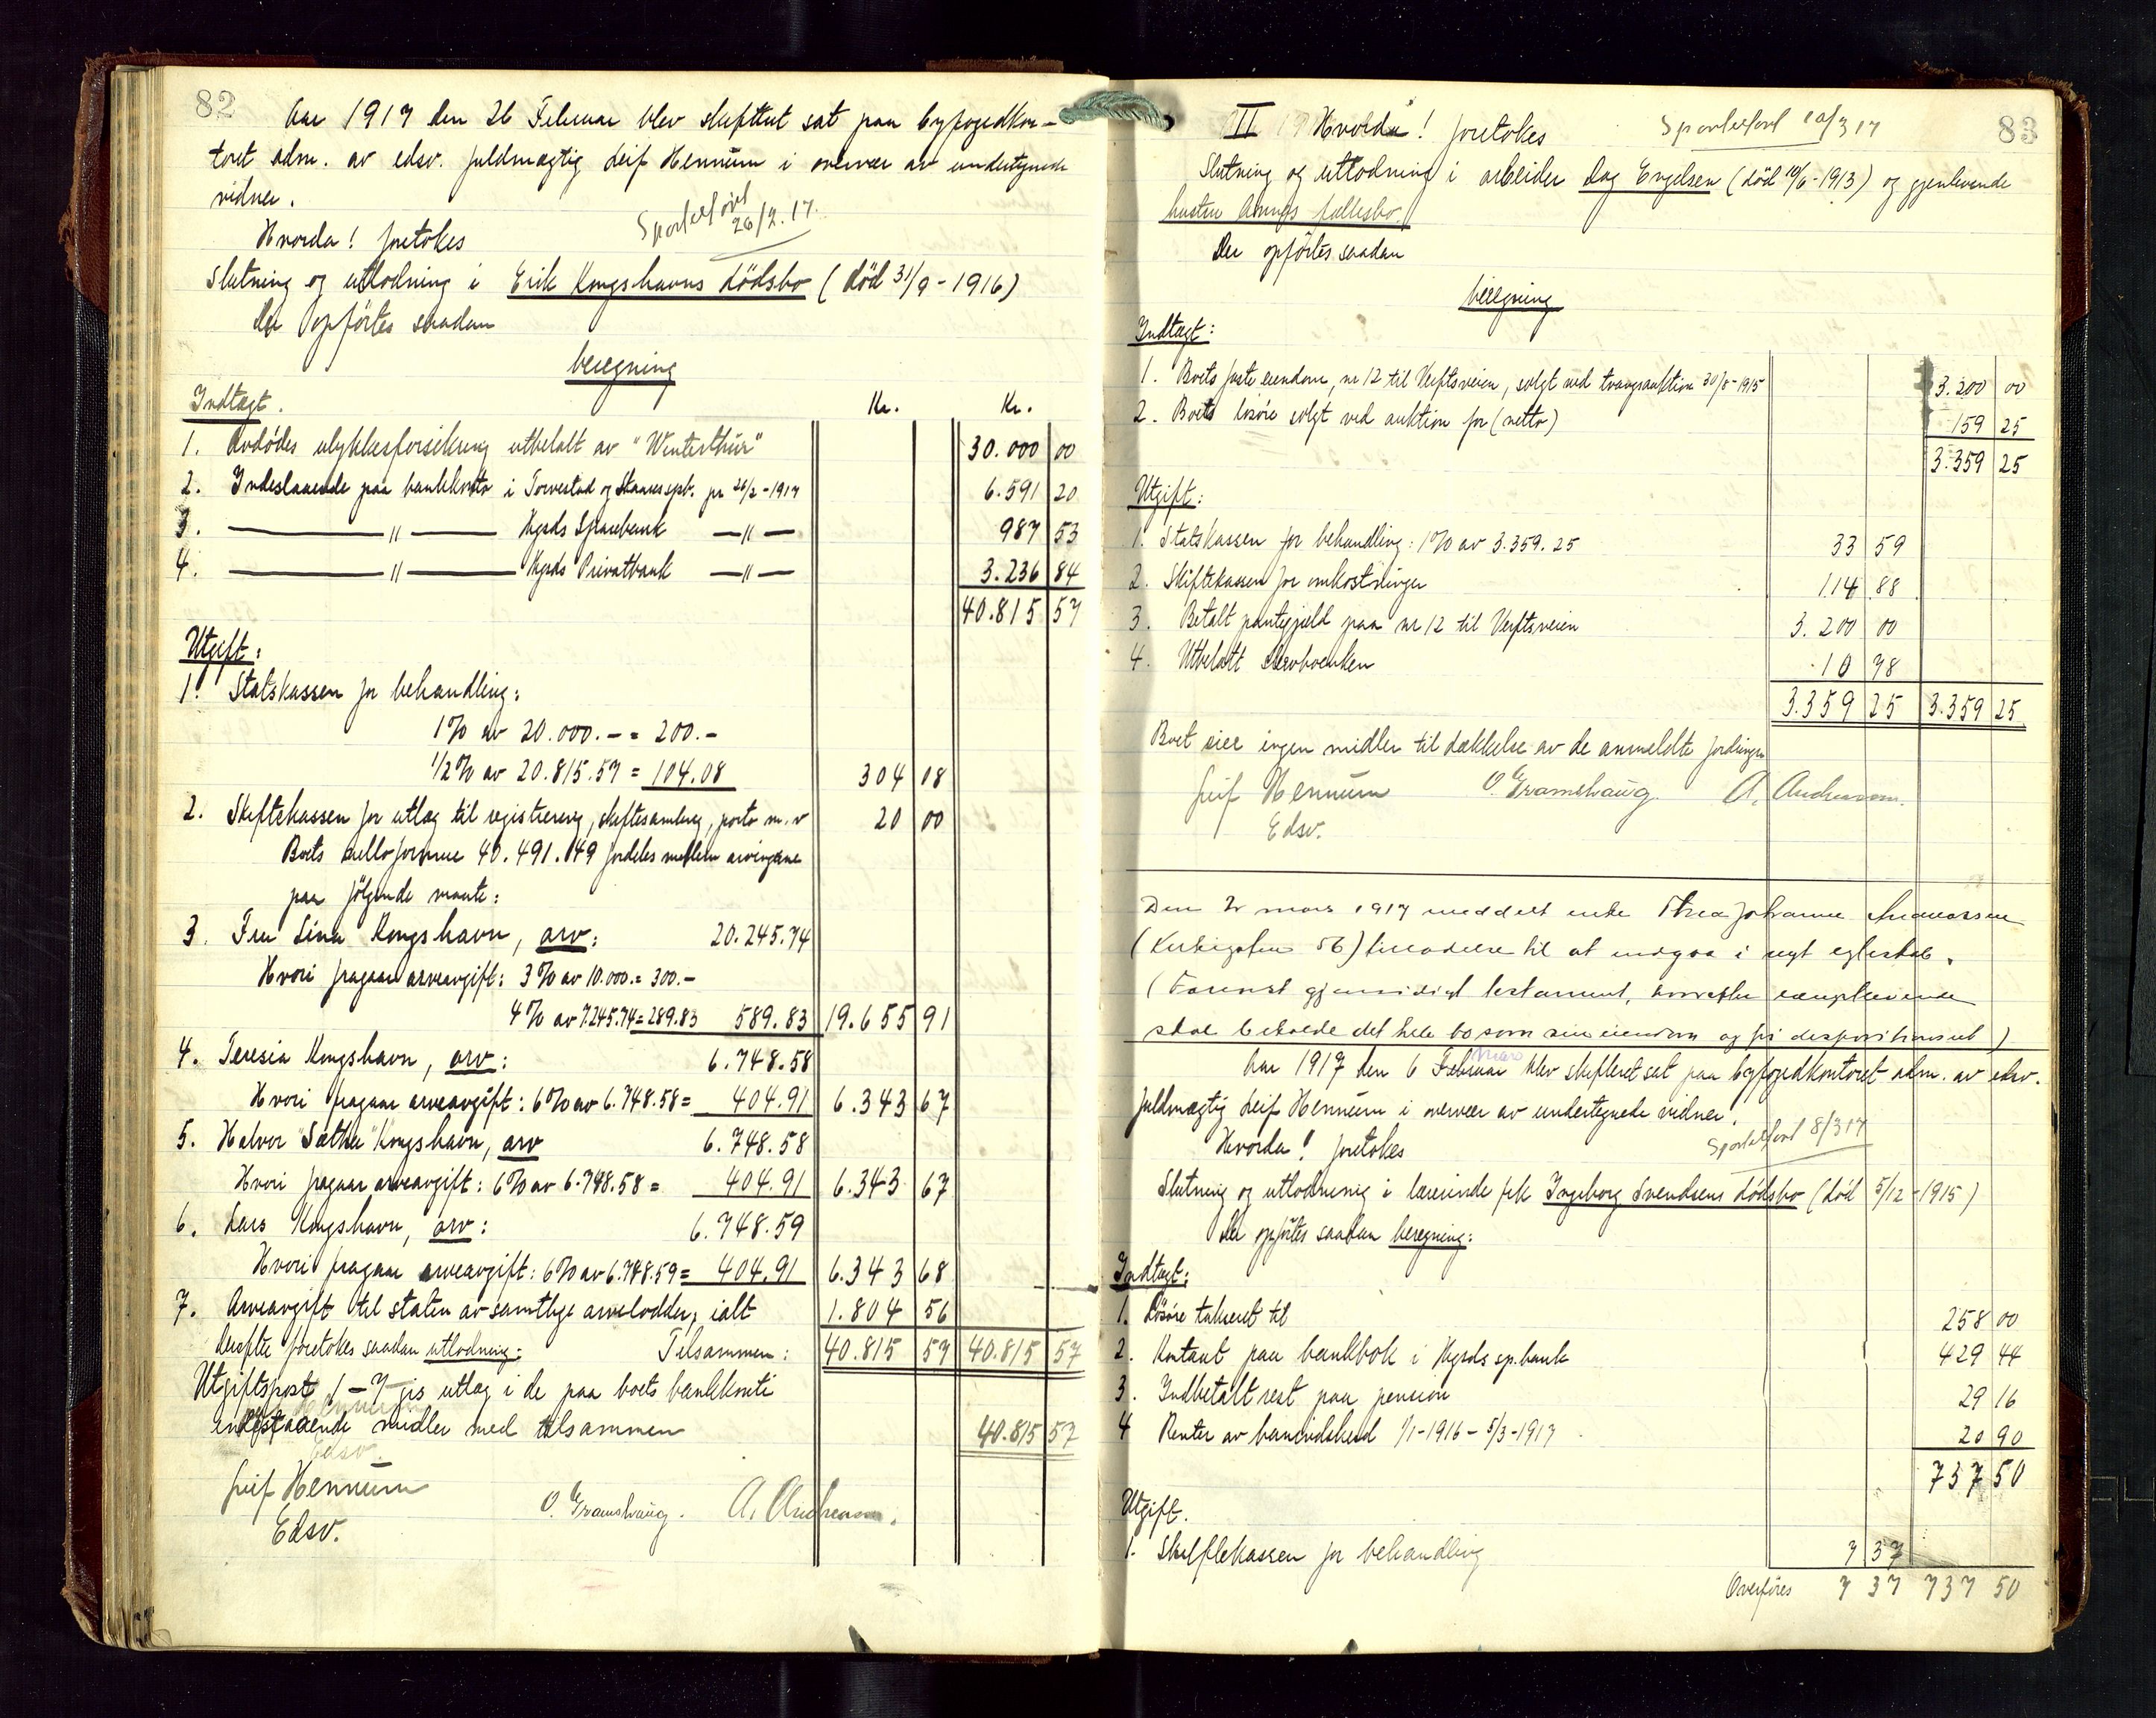 82
Aar 1917 den 26 Februar blev skifteret sat paa byfogedkon-
toret adm. av edsv. fuldmægtig Leif Hennum i overvær av undertegnede
vidner.
Sportelført
26/2.17.
Hvorda! foretokes
Slutning og utlodning i Erik Kongshavns dödsbo (död 31/9-1916)
Der opförtes saadan
beregning
Indtægt. Kr. Kr.
1. Avdödes ulykkesforsikring utbetalt av "Winterthur" 30.000 00
2. Indestaaende paa bankkonto i Torvestad og Skaares spb. pr 26/2-1917 6.591 20
3. —— " —— Hgsds Sparebank — " — 987 53
4. —— " —— Hgsds Privatbank — " — 3.236 84
40.815 57
Utgift:
1. Statskassen for behandling:
1% av 20.000.- = 200.-
1/2% av 20.815.57 = 104.08 304 08
2. Skiftekassen for utlæg til registrering, skiftesamling, porto m.v 20 00
Boets nettoformue 40.491.49 fordeles mellem arvingene
paa følgende maate:
3. Fru Lina Kongshavn, arv: 20.245.74
Hvori fragaar arveavgift: 3% av 10.000.= 300.-
4% av 7.245.74=289.83 589.83 19.655 91
4. Teresia Kongshavn, arv: 6.748.58
Hvori fragaar arveavgift: 6% av 6.748.58= 404.91 6.343 67
5. Halvor "Sæther" Kongshavn, arv 6.748.58
Hvori fragaar arveavgift: 6% av 6.748.58 = 404.91 6.343 67
6. Lars Kongshavn, arv: 6.748.59
Hvori fragaar arveavgift: 6% av 6.748.59= 404.91 6.343 68
7. Arveavgift til staten av samtlige arvelodder, ialt 1.804 56
Derefter foretokes saadan utlodning: Tilsammen: 40.815 57 40.815 57
Utgiftspost 1-7 gis utlæg i de paa boets bankkonti
indestaaende midler med tilsammen 40.815 57
Leif Hennum
Edsv.
O. Gramshaug. A. Andreassen.
83
II Hvorda! foretokes Sportelført 10/3 17
Slutning og utlodning i arbeider Dag Engelsen (död 10/6-1913) og gjenlevende
hustru Annas fællesbo.
Der opförtes saadan
beregning
Indtægt:
1. Boets faste eiendom, nr 12 til Verftsveien, solgt ved tvangsauktion 30/8-1915 3.200 00
2. Boets lösöre solgt ved auktion for (netto) 159 25
3.359 25
Utgift:
1. Statskassen for behandling: 1% av 3.359.25 33 59
2. Skiftekassen for omkostninger 114 88
3. Betalt pantegjæld paa nr 12 til Verftsveien 3.200 00
4. Utbetalt skorboenken 10 78
3.359 25 3.359 25
Boet eier ingen midler til dækkelse av de anmeldte fordringer
Leif Hennum O. Gramshaug. A. Andreassen.
Edsv.
Den 2 mars 1917 meddelt enke Thea Johanne Andreassen
(Kirkegaten 56) tilladelse til at indgaa i nyt egteskab.
(Forevist gjensidigt testament, hvorefter længstlevende
skal beholde det hele bo som sin eiendom og fri dispositionsret)
Aar 1917 den 6 Februar mars blev skifteret sat paa byfogedkontoret adm. av edsv.
fuldmægtig Leif Hennum i overvær av undertegnede vidner.
Hvorda! foretokes Sportelført 8/3 17
Slutning og utlodning i lærerinde frk Ingeborg Svendsens dödsbo (död 5/12-1915)
Der opförtes saadan beregning:
Indtægt:
1. Lösöre takseret til 258 00
2. Kontant paa bankbok i Hgsds sp.bank 429 44
3. Indbetalt rest paa pension 29 16
4 Renter av bankindskud 1/1-1916 - 5/3-1917 20 90
737 50
Utgift.
1. Skiftekassen for behandling 7 37
Overføres 7 37 737 50